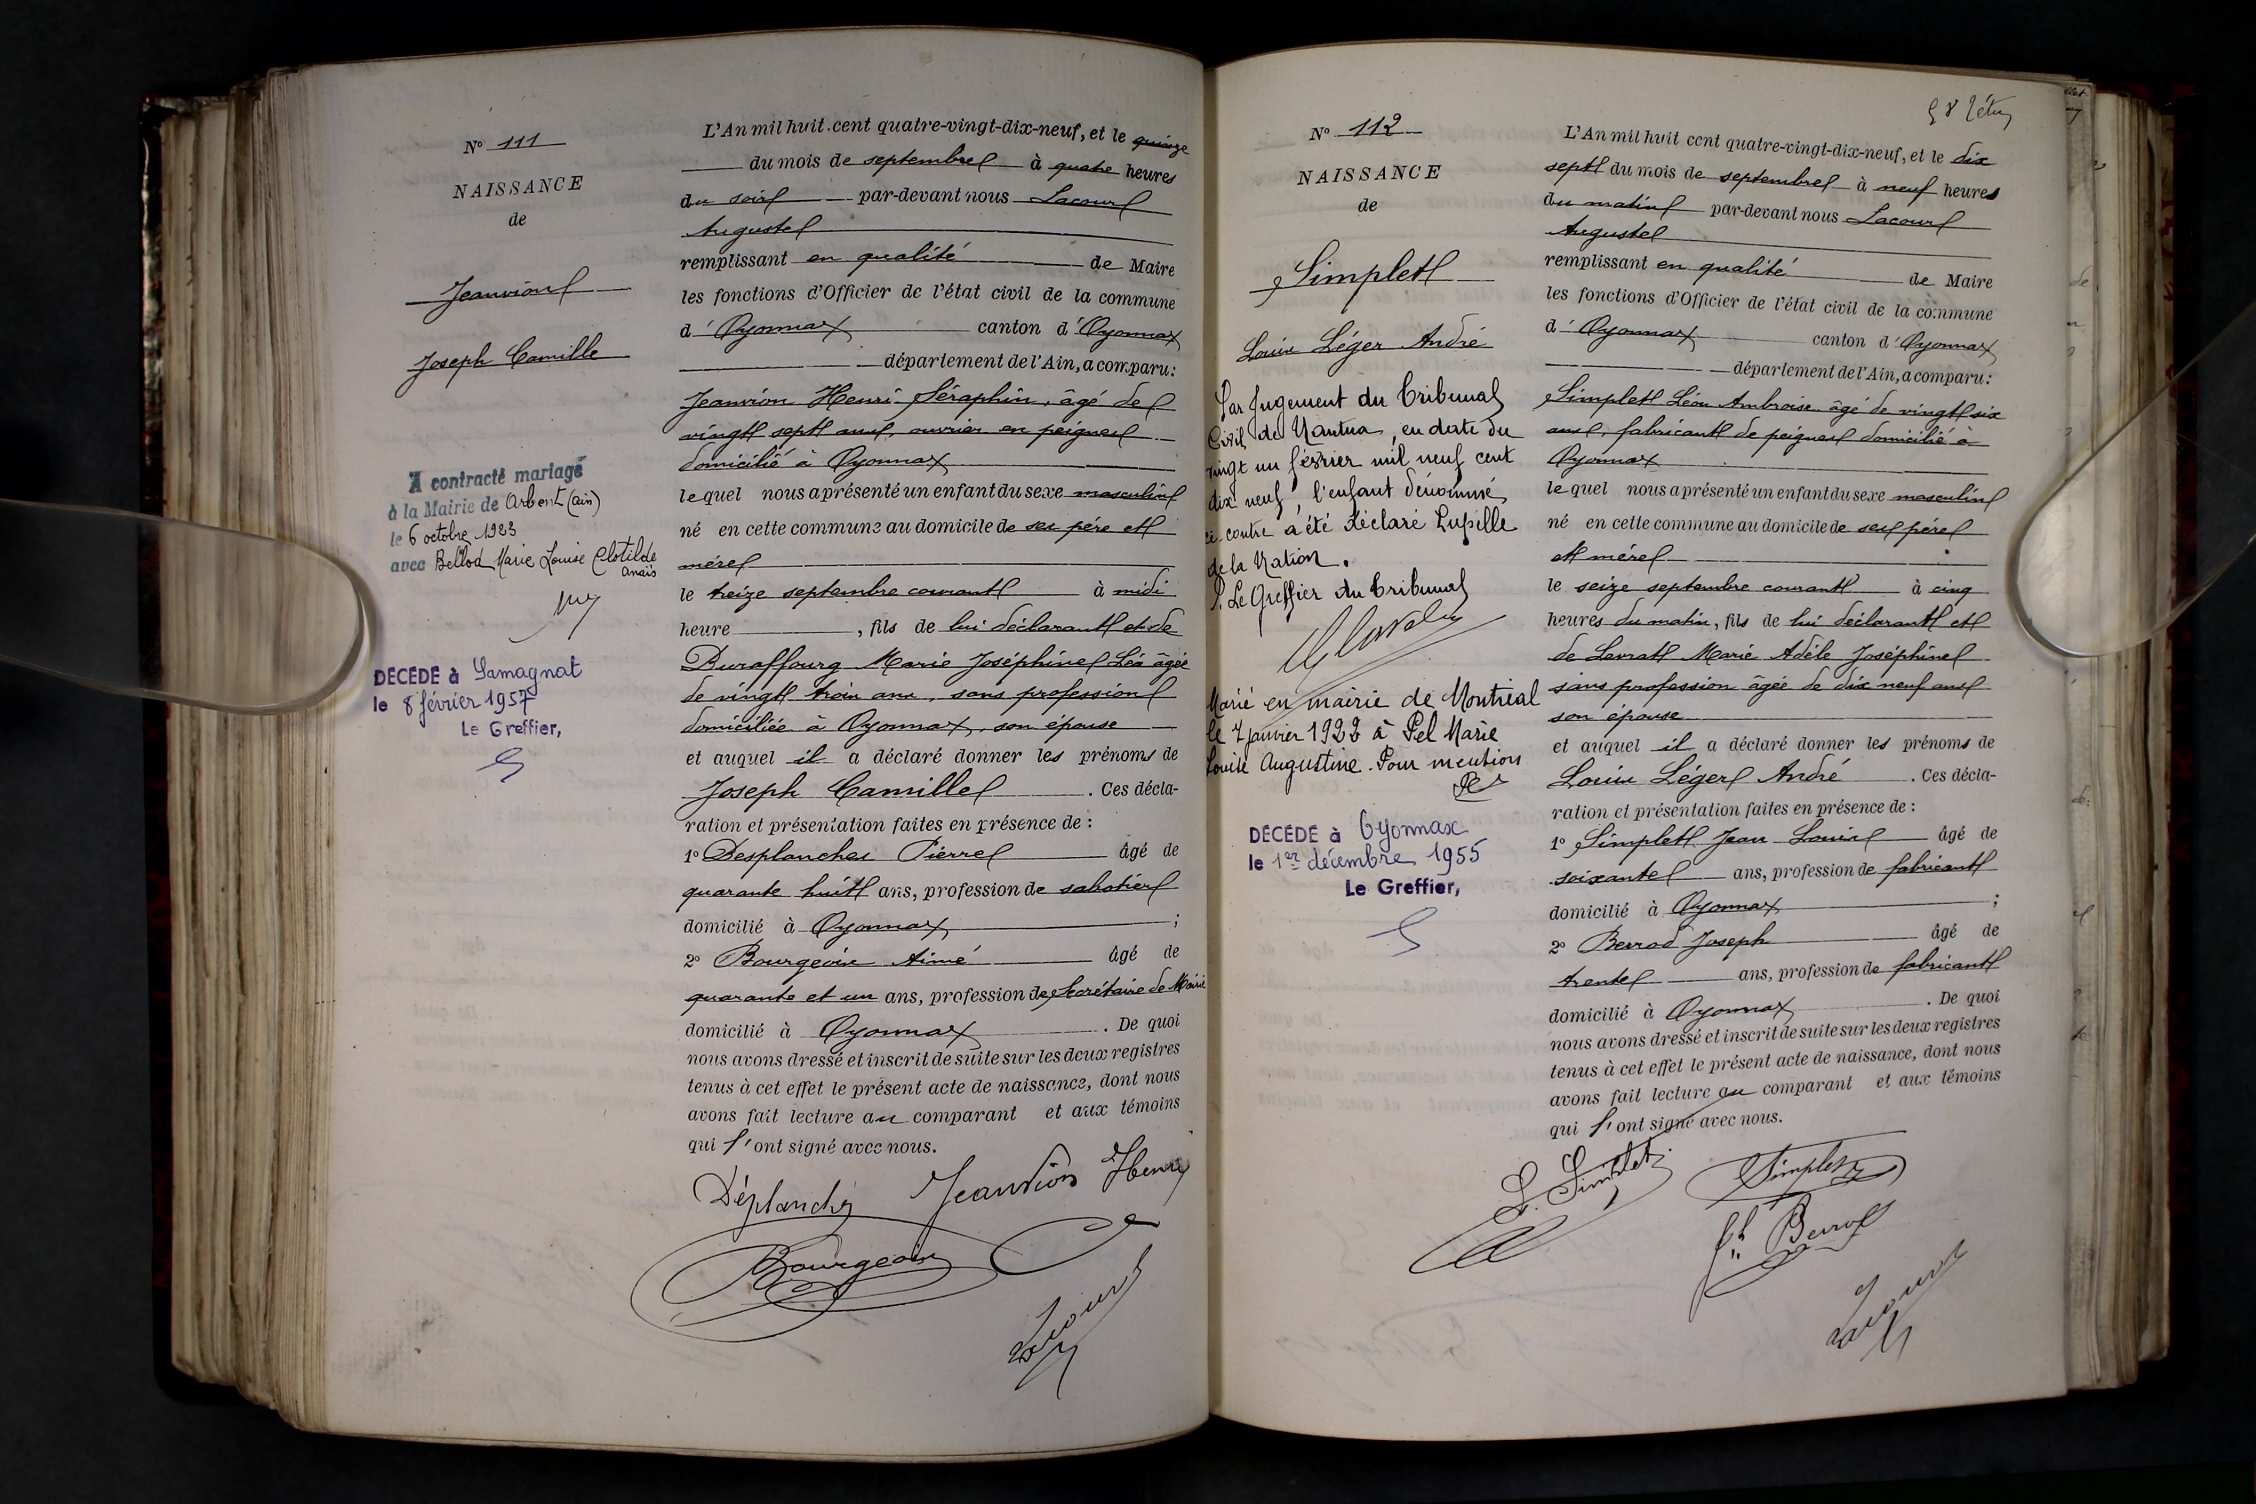 N° 111
NAISSANCE
de
Jeanvion
Joseph Camille
A contracté mariage
à la Mairie de Arbent (ain)
le 6 octobre 1923
avec Bellod Marie Louise Clotilde
anaïs
DÉCÉDÉ à Samagnat
le 8 février 1957
Le Greffier,
L'An mil huit cent quatre-vingt-dix-neuf, et le quinze
du mois de septembre à quatre heures
du soir par-devant nous Lacour
Auguste
remplissant en qualité de Maire
les fonctions d'Officier de l'état civil de la commune
d'Oyonnax canton d'Oyonnax
département de l'Ain, a comparu:
Jeanvion Henri Séraphin, âgé de
vingt sept ans, ouvrier en peignes
domicilié à Oyonnax
lequel nous a présenté un enfant du sexe masculin
né en cette commune au domicile de ses père et
mère
le treize septembre courant à midi
heure, fils de lui déclarant et de
Duraffourg Marie Joséphine Léa âgée
de vingt trois ans, sans profession
domiciliée à Oyonnax, son épouse
et auquel il a déclaré donner les prénoms de
Joseph Camille. Ces décla-
ration et présentation faites en présence de :
1° Desplanches Pierre âgé de
quarante huit ans, profession de sabotier
domicilié à Oyonnax ;
2° Bourgeois Aimé âgé de
quarante et un ans, profession de Secrétaire de Mairie
domicilié à Oyonnax. De quoi
nous avons dressé et inscrit de suite sur les deux registres
tenus à cet effet le présent acte de naissance, dont nous
avons fait lecture au comparant et aux témoins
qui l'ont signé avec nous.
Déplanche Jeanvion Henri
Bourgeois
Lacour
N° 112
NAISSANCE
de
Simplet
Louis Léger André
Par Jugement du Tribunal
Civil de Nantua, en date du
vingt un février mil neuf cent
dix neuf, l'enfant dénommé
ci-contre a été déclaré Pupille
de la Nation.
P. Le Greffier du Tribunal
Marié en mairie de Montréal
le 7 janvier 1922 à Pel Marie
Louise Augustine. Pour mention
DÉCÉDÉ à Oyonnax
le 1er décembre 1955
Le Greffier,
L'An mil huit cent quatre-vingt-dix-neuf, et le dix
sept du mois de septembre à neuf heures
du matin par-devant nous Lacour
Auguste
remplissant en qualité de Maire
les fonctions d'Officier de l'état civil de la commune
d'Oyonnax canton d'Oyonnax
département de l'Ain, a comparu:
Simplet Léon Ambroise âgé de vingt six
ans, fabricant de peignes domicilié à
Oyonnax
lequel nous a présenté un enfant du sexe masculin
né en cette commune au domicile de ses père
et mère
le seize septembre courant à cinq
heures du matin, fils de lui déclarant et
de Levrat Marie Adèle Joséphine
sans profession âgée de dix neuf ans
son épouse
et auquel il a déclaré donner les prénoms de
Louis Léger André. Ces décla-
ration et présentation faites en présence de :
1° Simplet Jean Louis âgé de
soixante ans, profession de fabricant
domicilié à Oyonnax ;
2° Berrod Joseph âgé de
trente ans, profession de fabricant
domicilié à Oyonnax. De quoi
nous avons dressé et inscrit de suite sur les deux registres
tenus à cet effet le présent acte de naissance, dont nous
avons fait lecture au comparant et aux témoins
qui l'ont signé avec nous.
L. Simplet Simplet
Jh Berrod
Lacour